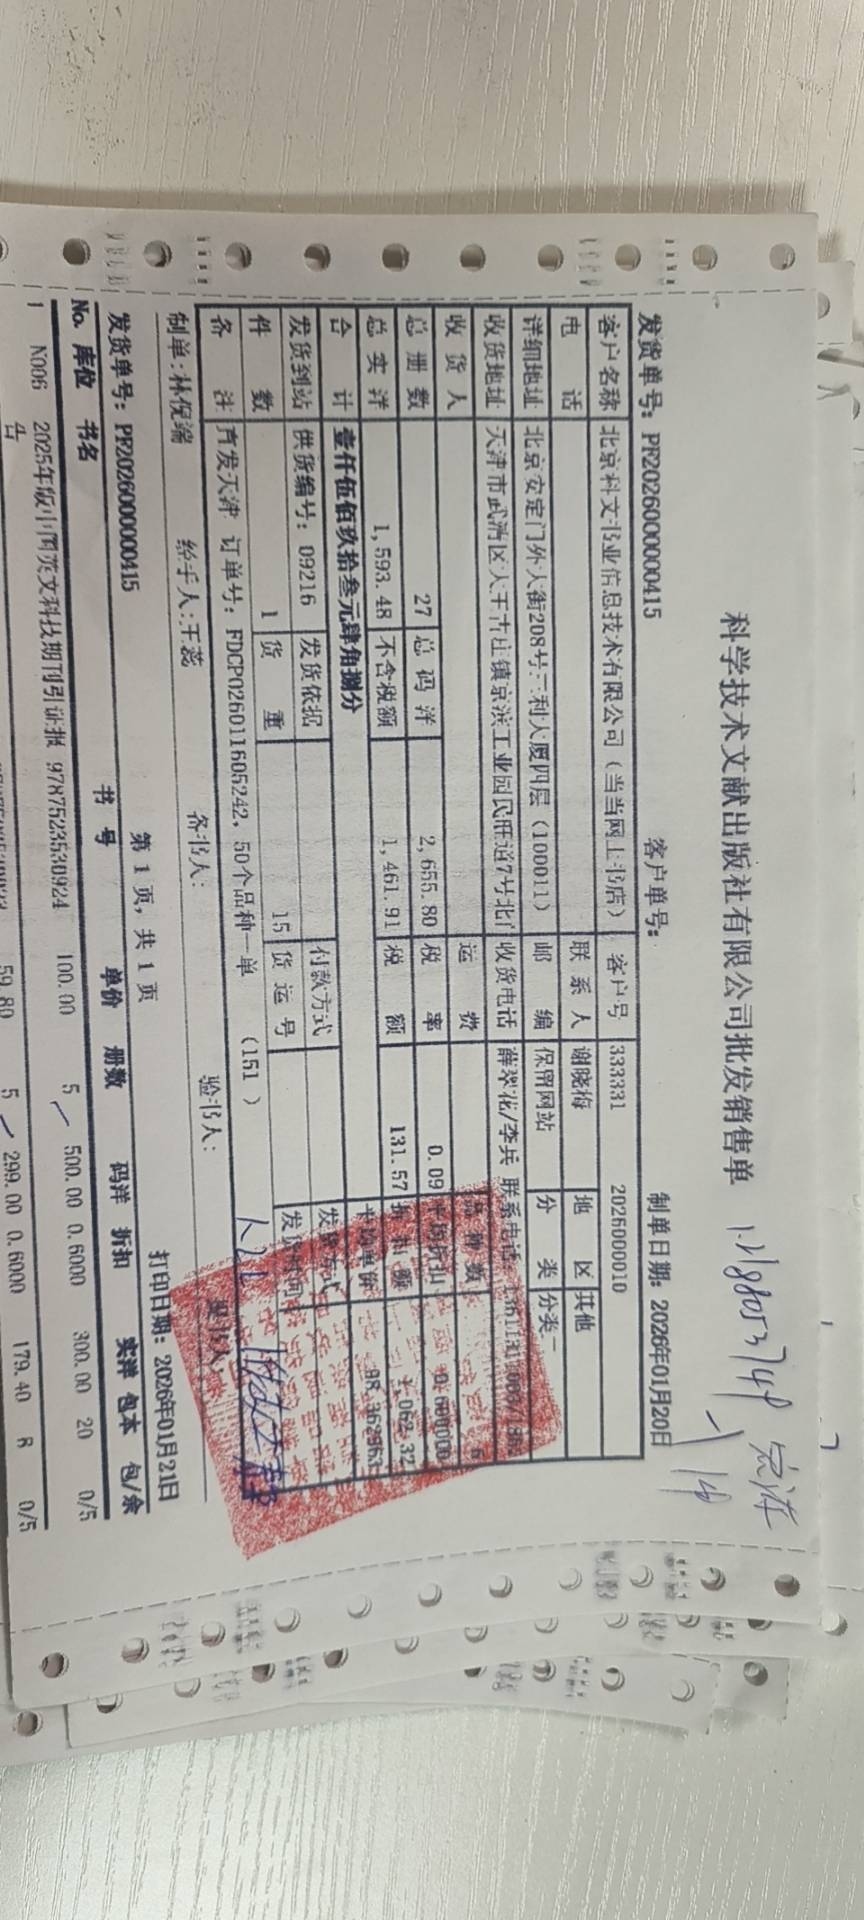 科学技术文献出版社有限公司批发销售单
发货单号: PF2026000000415 客户单号: 制单日期: 2026年01月20日
客户名称 北京科文书业信息技术有限公司（当当网上书店） 客户号 333331 2026000010
电 话 联系人 谢晓梅 地 区 其他
详细地址 北京安定门外大街208号三利大厦四层（100011） 邮 编 保留网站 分 类 分类一
收货地址 天津市武清区大王古庄镇京滨工业园民旺道7号北门 收货电话 薛翠花/李兵 联系电话:
收 货 人 运 费 品 种 数 6
总 册 数 27 总 码 洋 2,655.80 税 率 0.09 平均折扣 0.600000
总 实 洋 1,593.48 不含税额 1,461.91 税 额 131.57 折 扣 额 1,062.32
合 计 壹仟伍佰玖拾叁元肆角捌分 平均单价 98.362963
发货到站 供货编号: 09216 发货依据 付款方式 发货方式
件 数 1 货 重 15 货 运 号 发货时间
备 注 直发天津 订单号: FDCP026011605242, 50个品种一单 （151 ）
制单:林倪端 经手人:王蕊 备书人: 验书人:
第 1 页, 共 1 页 打印日期: 2026年01月21日
发货单号: PF2026000000415
No. 库位 书名 书 号 单价 册数 码洋 折扣 实洋 包本 包/余
1 N006 2025年版中国英文科技期刊引证报 9787523530924 100.00 5 500.00 0.6000 300.00 20 0/5
告
59.80 5 299.00 0.6000 179.40 8 0/5